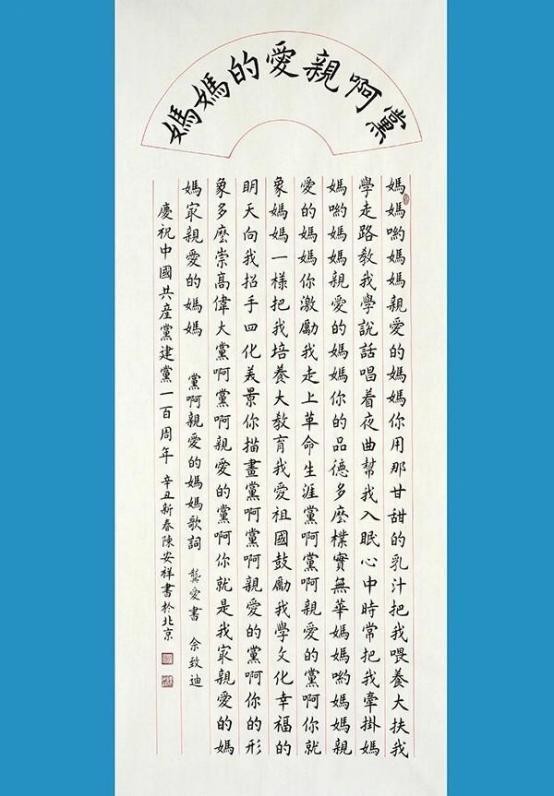 黨啊親愛的媽媽
媽媽喲媽媽親愛的媽媽你用那甘甜的乳汁把我喂養大扶我
學走路教我學說話唱着夜曲幫我入眠心中時常把我牽掛媽
媽喲媽媽親愛的媽媽你的品德多麽樸實無華媽媽喲媽媽親
愛的媽媽你激勵我走上革命生涯黨啊黨啊親愛的黨啊你就
象媽媽一樣把我培養大教育我愛祖國鼓勵我學文化幸福的
明天向我招手四化美景你描畫黨啊黨啊親愛的黨啊你的形
象多麽崇高偉大黨啊黨啊親愛的黨啊你就是我家親愛的媽
媽家親愛的媽媽 黨啊親愛的媽媽歌詞 龔愛書 佘致迪
慶祝中國共産黨建黨一百周年 辛丑新春陳安祥書於北京